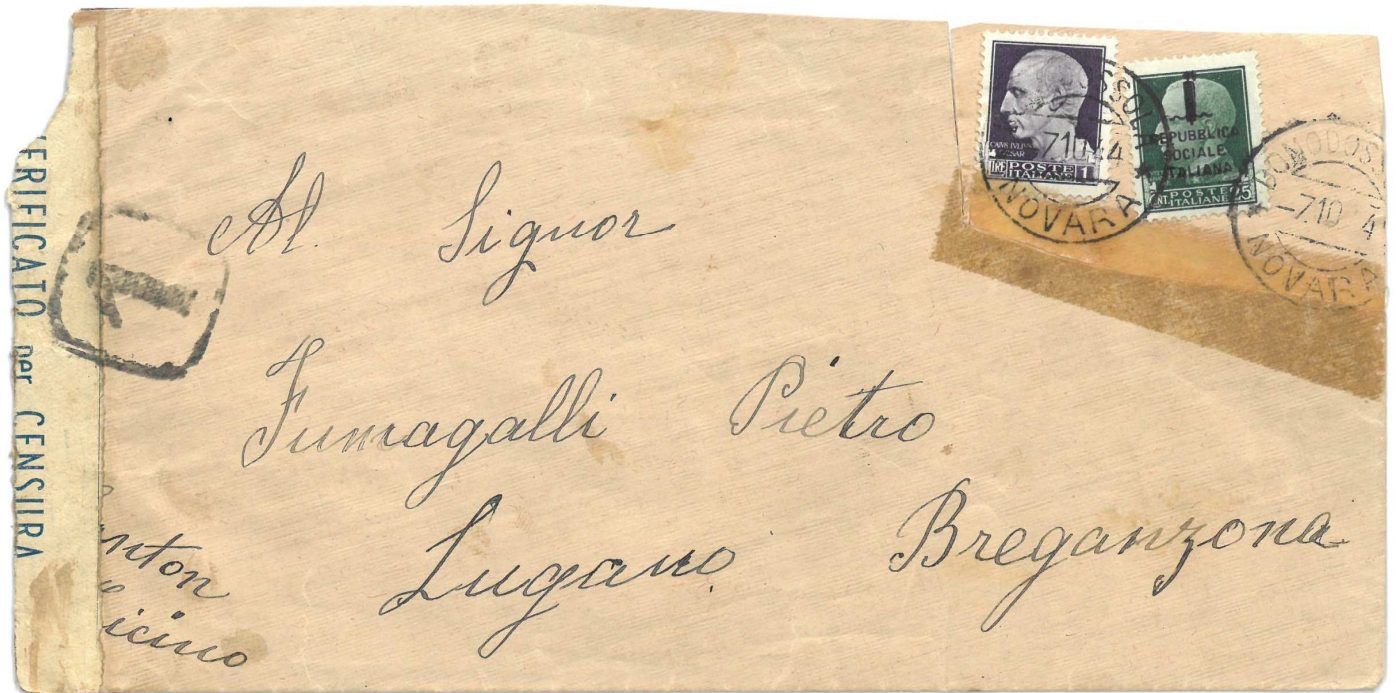 VERIFICATO per CENSURA
1
CAIVS IVLIVS
CAESAR
LIRE POSTE 1
ITALIANE
REPUBBLICA
SOCIALE
ITALIANA
CENT. POSTE 25
ITALIANE
-7.10.44
NOVARA
DOMODOS
-7.10 4
NOVARA
Al Signor
Fumagalli Pietro
Lugano Breganzona
anton
icino